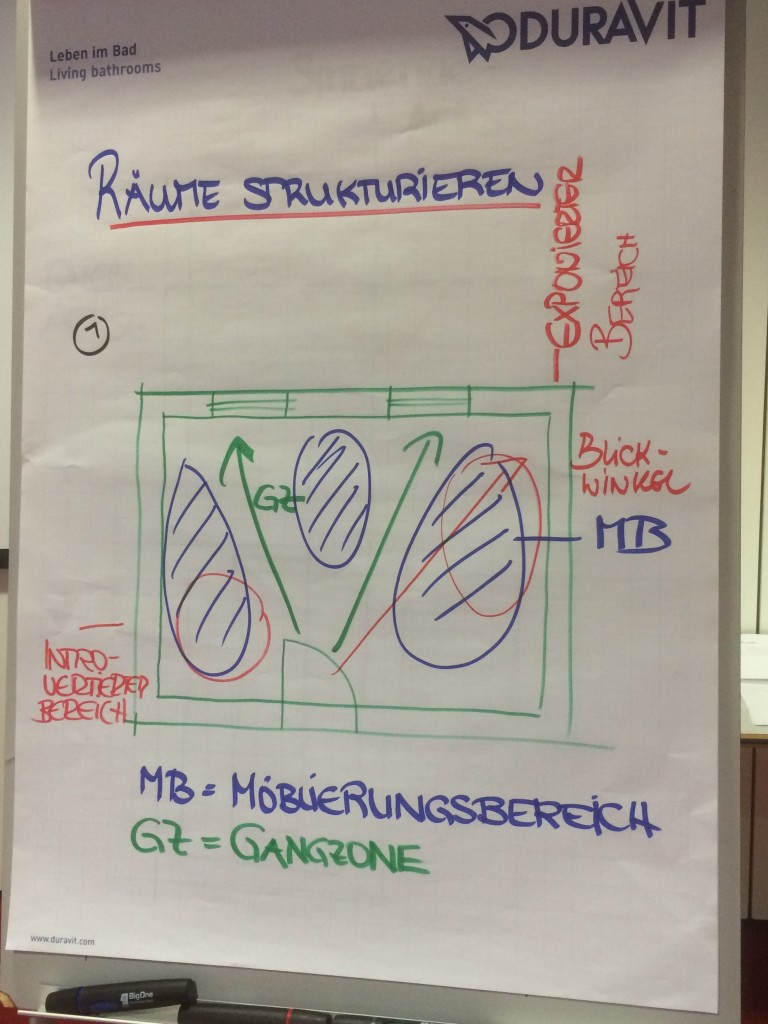 Leben im Bad
Living bathrooms
DURAVIT
RÄUME STRUKTURIEREN
EXPONIERTER
BEREICH
1
BLICK-
WINKEL
GZ
MB
INTRO-
VERTIERTER
BEREICH
MB = MÖBLIERUNGSBEREICH
GZ = GANGZONE
www.duravit.com
BigOne